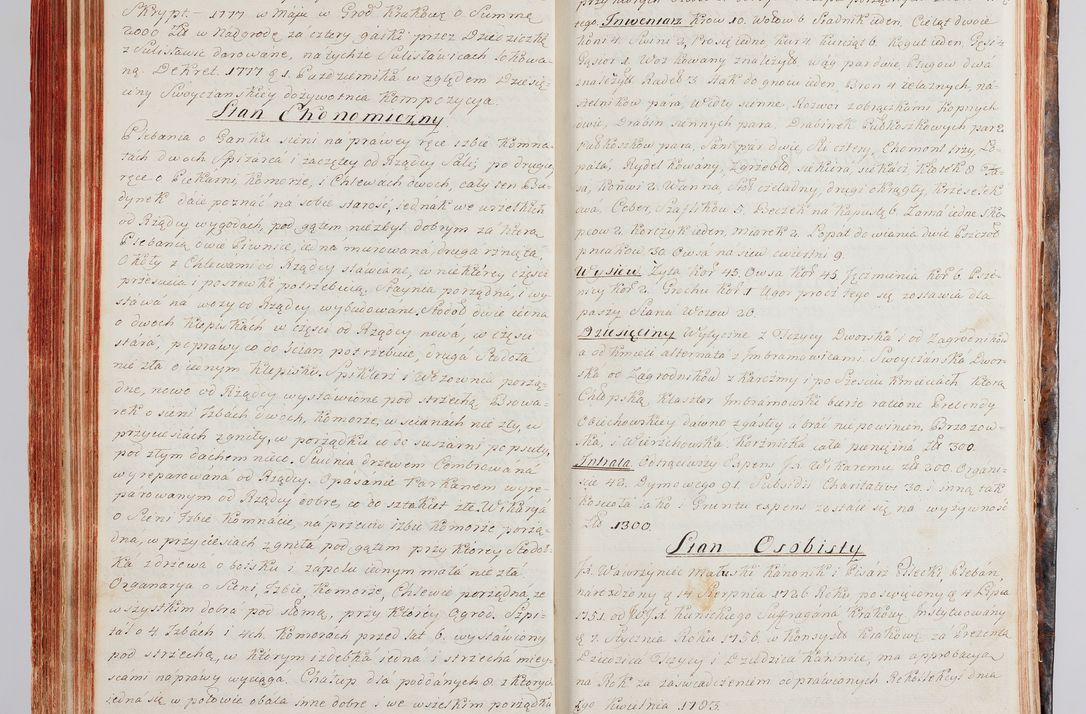 Skrypt. – 1777 w Maju w Grod. Krakows: o Summę
2000 zł: w Nadgrodę za cztery gaiki przez Dziedziczkę
z Sulisławic darowane, na tychże Sulisławicach lokowa-
ną. Dekret. 1777 q 1. Pazdziernika względem Dziesię-
ciny Swoyczanskiey dożywotnia kompozycya.
Stan Ekonomiczny
Plebania o Ganku sieni na prawey ręce izbie Komna-
tach dwoch Spizarce i zaczętey od Rządcy Sali; po drugiey
ręce o Piekarni, Komorze, i Chlewach dwoch, cały ten Bu-
dynek daie poznać na sobie starość, iednak we wszelkich
od Rządcy wygodach, pod gątem niezbyt dobrym za ktorą
Plebanią dwie Piwnice, iedna murowana, druga rznięta,
Oboły z Chlewami od Rządcy stawiane, w niektorey części
przesucia i poszewki potrzebuią. Staynia porządna, i wy-
stawa na wozy od Rządcy wybudowane. Stodoł dwie iedna
o dwoch klepiskach w części od Rządcy nowa, w części
stara, poprawy co do ścian potrzebuie, druga Stodoła
nie zła o iednym klepisku. Spiklerz i Wozownia porzą-
dne, nowo od Rządcy wystawione pod strzechą. Browa-
rek o sieni Izbach dwoch, Komorze, w scianach nie zły, w
przyciesiach zgniły, w porządku co do suszarni popsuty,
pod złym dachem nieco. Studnia drzewem Cembrowana
wyreparowana od Rządcy. Opasanie Parkanem wyre-
parowanym od Rządcy dobre, co do sztakiet złe. Wikarya
o Sieni Izbie Komnacie, na przeciw izbie komorze porzą-
dna, w przyciesiach zgniła pod gątem przy ktorey Stodoł-
ka zdrzewa o boisku i zapolu iednym mała nie zła.
Organarya o Sieni, Izbie, Komorze, Chlewie porządna, ze
wszystkim dobra pod słomą, przy ktorey Ogrod. Szpi-
tal o 4 Izbach i 4ch. Komorach przed lat 6. wystawiony
pod strzechą, w ktorym izdebka iedna i strzecha miey-
scami naprawy wyciąga. Chałup dla poddanych 8. z ktorych
iedna się w połowie obala inne dobre i we wszelkim porządku
tego. Inwentarz Krow 10. Wołow 6. Stadnik ieden, Cieląt dwoie
Koni 4. Swini 2, Prosię iedno, Kur 4 Kurcząt 6. Kogut ieden, Gęsi 2
Gąsior 1. Woz kowany znależyt: wag par dwie, Pługow dwa
znależyt: Radeł 3. Hak do gnoiu ieden, Bron 4 żelaznych, na-
szelnikow para, Widły sienne, Rozwor zobrączkami kopnych
dwie, Drabin siennych para, Drabinek Pułkoszkowych para
Pułkoszkow para, Sani par dwie, cztery, Chomont trzy, Ło-
pata, Rydel kowany, Zgrzebło, siekiera, siekacz Kłosek 8. Ko-
sa, Konwi 2. Wanna, Stoł czeladny, drugi okrągły, krzesełek
dwa. Ceber, Szaflikow 5, Beczek na kapustę 6. Zarna iedne, Sko-
pcow 2. Korczyk ieden, miarek 2. Łopat do wiania dwie Pszczoł
pniakow 30. Owsa na siew cwiertni 9.
Wysiew. Zyta Kor: 45, Owsa Kor: 45. Jęczmienia Kor: 6. Psze-
nicy Kor 2. Grochu Kor. 1 Ugor procz tego się zostawia dla
paszy. Siana Wozow 26.
Dziesięciny Wytyczne z Tczycy Dworska i od Zagrodnikow
a od Kmieci alternata z Imbramowicami. Swoyczanska Dwor-
ska od Zagrodnikow z karczmy i po Szesciu Kmieciach, ktorą
Chłopską Klasztor Imbramowski bierze ratione Prebendy
Obiechowskiey dawno zgasłey a brać nie powinien, Brzozow-
ska, i Wierzchowska Korznicka cała pienięzna zł: 300.
Intrata. Odtrąciwszy Expens JX. Wikaremu zł: 200. Organi-
scie 42. Dymowego 91. Subsidii Charitativi 30. i inną tak
koscioła iako i Gruntu expens zostaie się na wyżywność
zł: 1300.
Stan Osobisty
JX. Wawrzyniec Małuski Kanonik i Pisarz Pilecki, Pleban,
narodzony q 14 Sierpnia 1726 Roku poswięcony q 4 Lipca
1751. od J.W.JX. Kunickiego Suffragana Krakows: Instytuowany
q 7. Stycznia Roku 1756, w Konsyst: Krakows: za Prezentą
Dziedzica Tczycy i Dziedzica Karwince, ma approbacyą
na Rok za zaswiadczeniem odprawionych Rekollekcyi dnia
Kwietnia 1783.